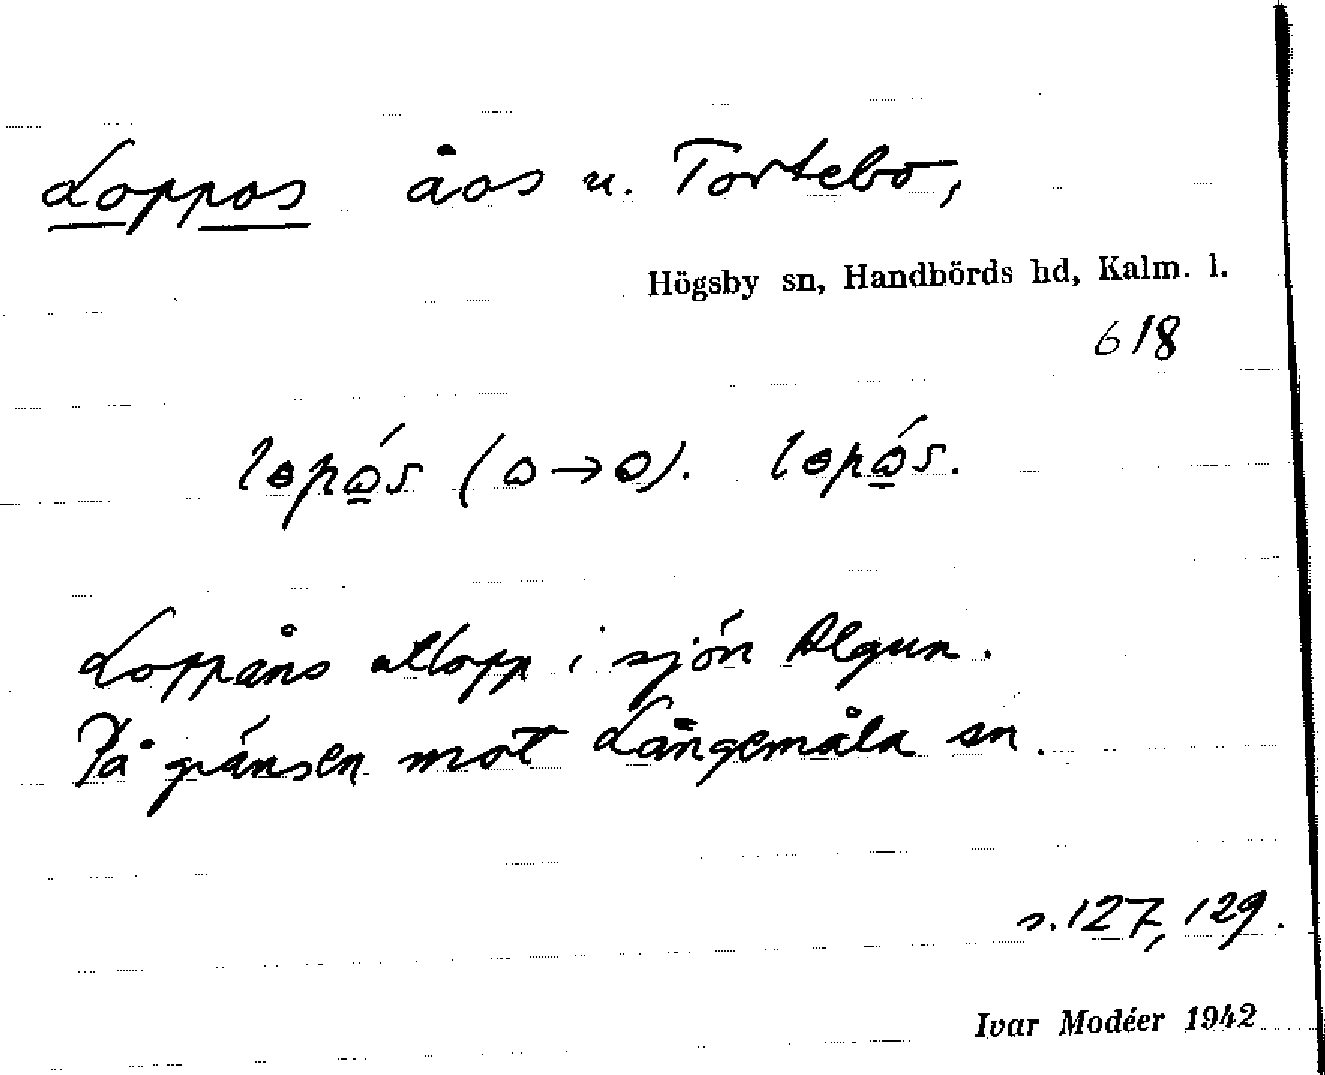 Loppos åos u. Tortebo,
Högsby sn, Handbörds hd, Kalm. l.
618
Loppåns utlopp i sjön Algun.
På gränsen mot Långemåla sn.
s. 127, 129.
Ivar Modéer 1942